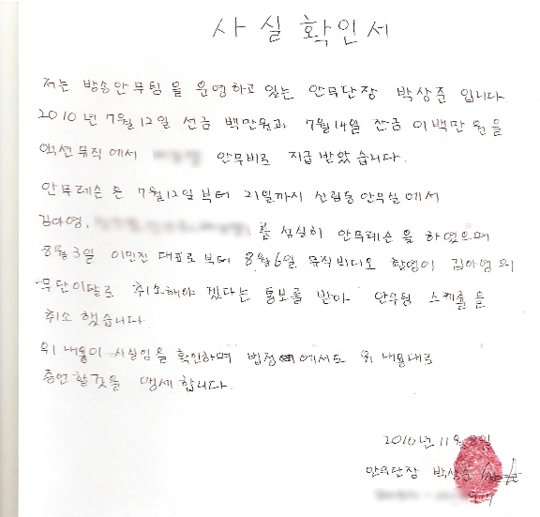 사실확인서
저는 방송안무팀을 운영하고 있는 안무단장 박상준 입니다
2010년 7월 12일 선금 백만원과 7월 14일 잔금 이백만 원을
액션뮤직에서 안무비로 지급 받았습니다.
안무레슨은 7월 12일 부터 21일까지 신림동 안무실에서
김아영, 를 성실히 안무레슨을 하였으며
8월 3일 이민진 대표로 부터 8월 6일 뮤직비디오 촬영이 김아영의
무단이탈로 취소해야 겠다는 통보를 받아 안무팀 스케줄을
취소 했습니다
위 내용이 사실임을 확인하며 법정에서도 위 내용대로
증언할것을 맹세합니다.
2010년 11월 8일
안무단장 박상준